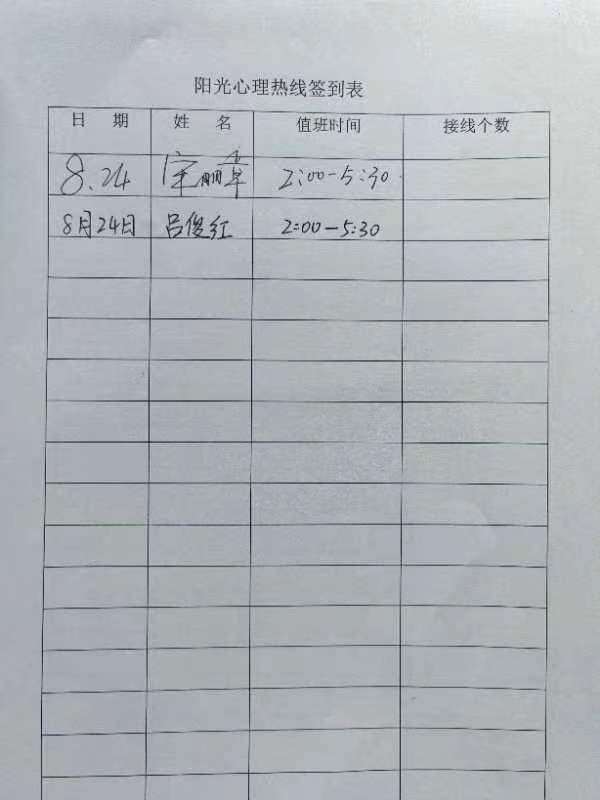 阳光心理热线签到表
日 期 姓 名 值班时间 接线个数
8.24 宋丽章 2:00-5:30
8月24日 吕俊红 2:00-5:30